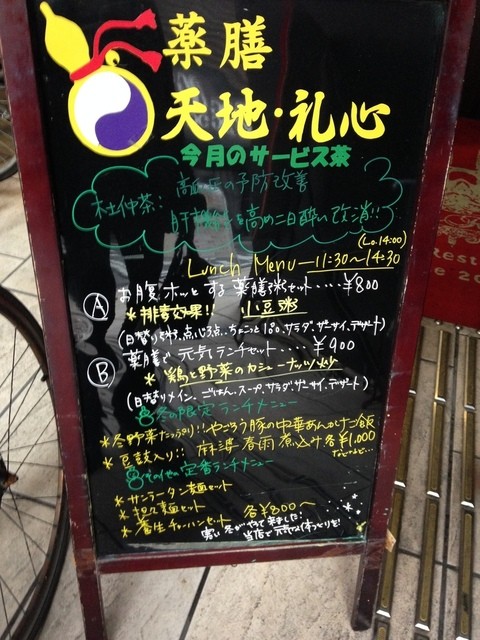 薬膳
天地・礼心
今月のサービス茶
杜仲茶: 高血圧の予防改善
肝機能を高め二日酔い改消!!
(Lo.14:00)
Lunch Menu―11:30〜14:30
お腹ホッとする薬膳粥セット‥‥¥800
Ⓐ *排毒効果!! 小豆粥
(日替り粥、点心3点、ちょこっと1品、サラダ、ザーサイ、デザート)
薬膳で元気ランチセット‥‥¥900
Ⓑ *鶏と野菜のカシューナッツ炒
(日替りメイン、ごはん、スープ、サラダ、ザーサイ、デザート)
冬の限定ランチメニュー
*冬野菜たっぷり!!やごろう豚の中華あんかけご飯
*豆鼓入り!! 麻婆春雨煮込み 各¥1,000
などなど…
その他の定番ランチメニュー
*サンラータン麺セット
*担々麺セット
*養生チャーハンセット 各¥800〜
寒い冬がやって来ました
当店で元気な体づくりを!
Rest
e 20